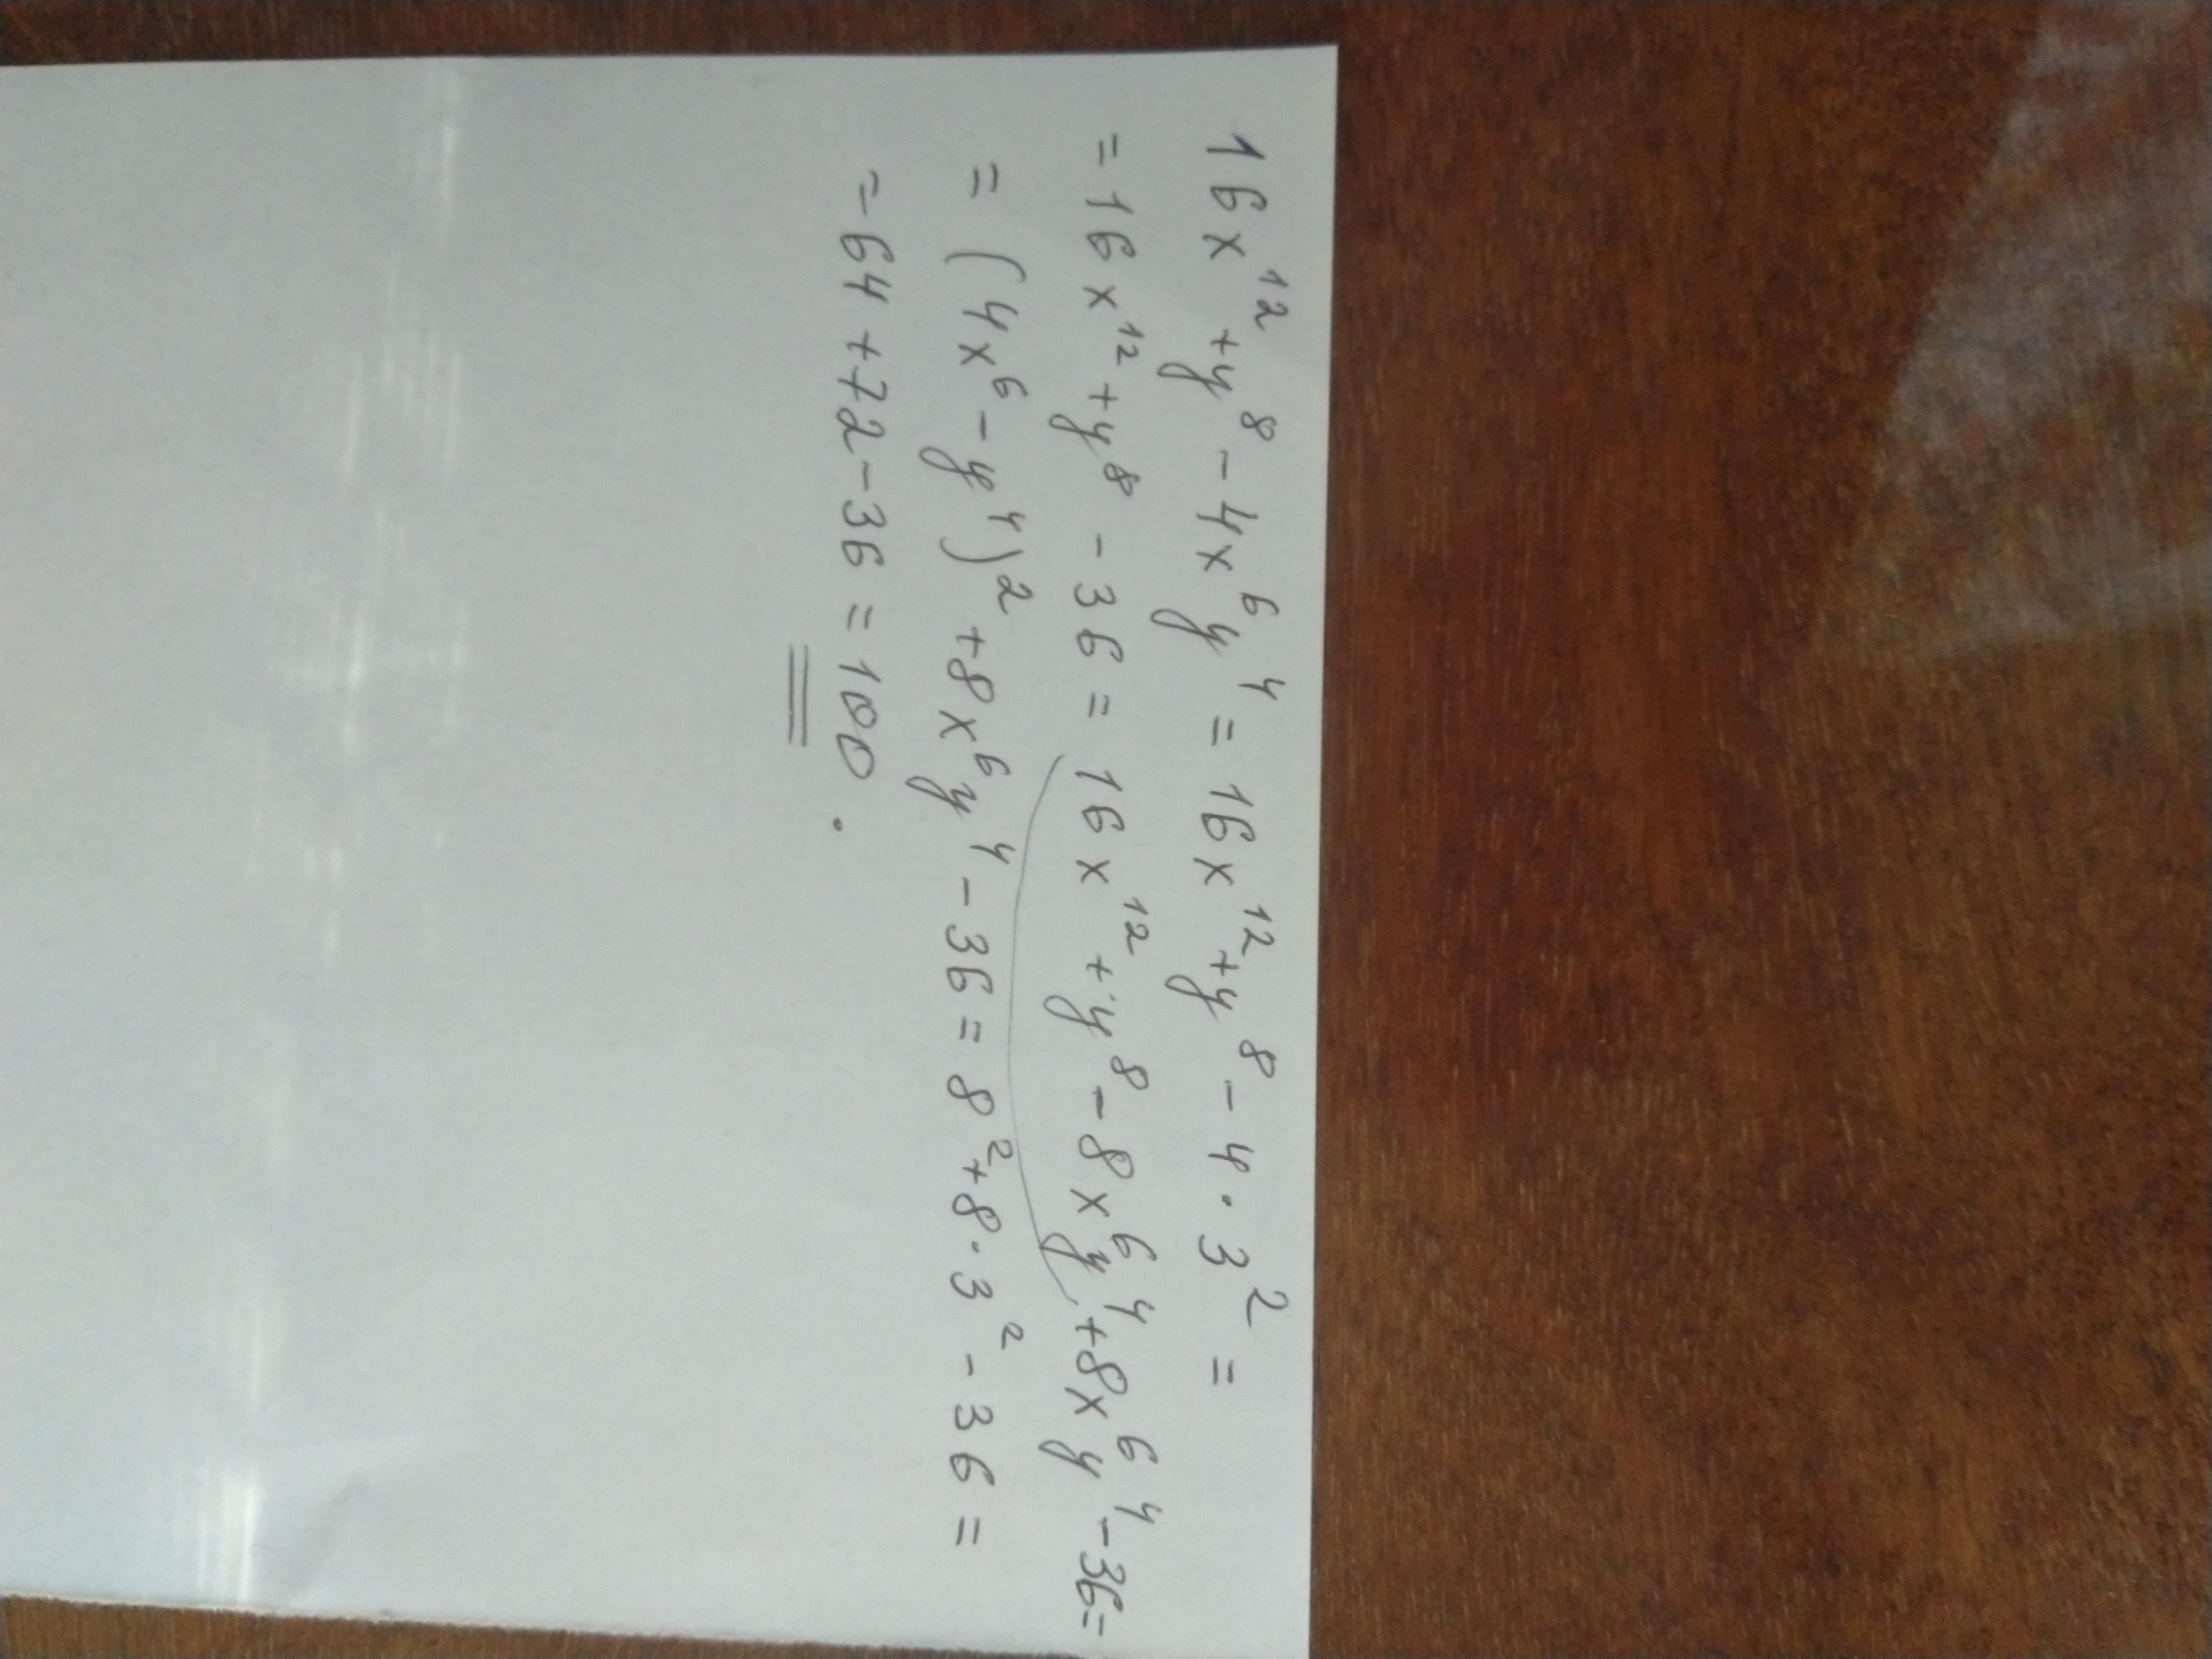 16x¹² + y⁸ - 4x⁶y⁴ = 16x¹² + y⁸ - 4 · 3² =
= 16x¹² + y⁸ - 36 = 16x¹² + y⁸ - 8x⁶y⁴ + 8x⁶y⁴ - 36 =
= (4x⁶ - y⁴)² + 8x⁶y⁴ - 36 = 8² + 8 · 3² - 36 =
= 64 + 72 - 36 = 100.